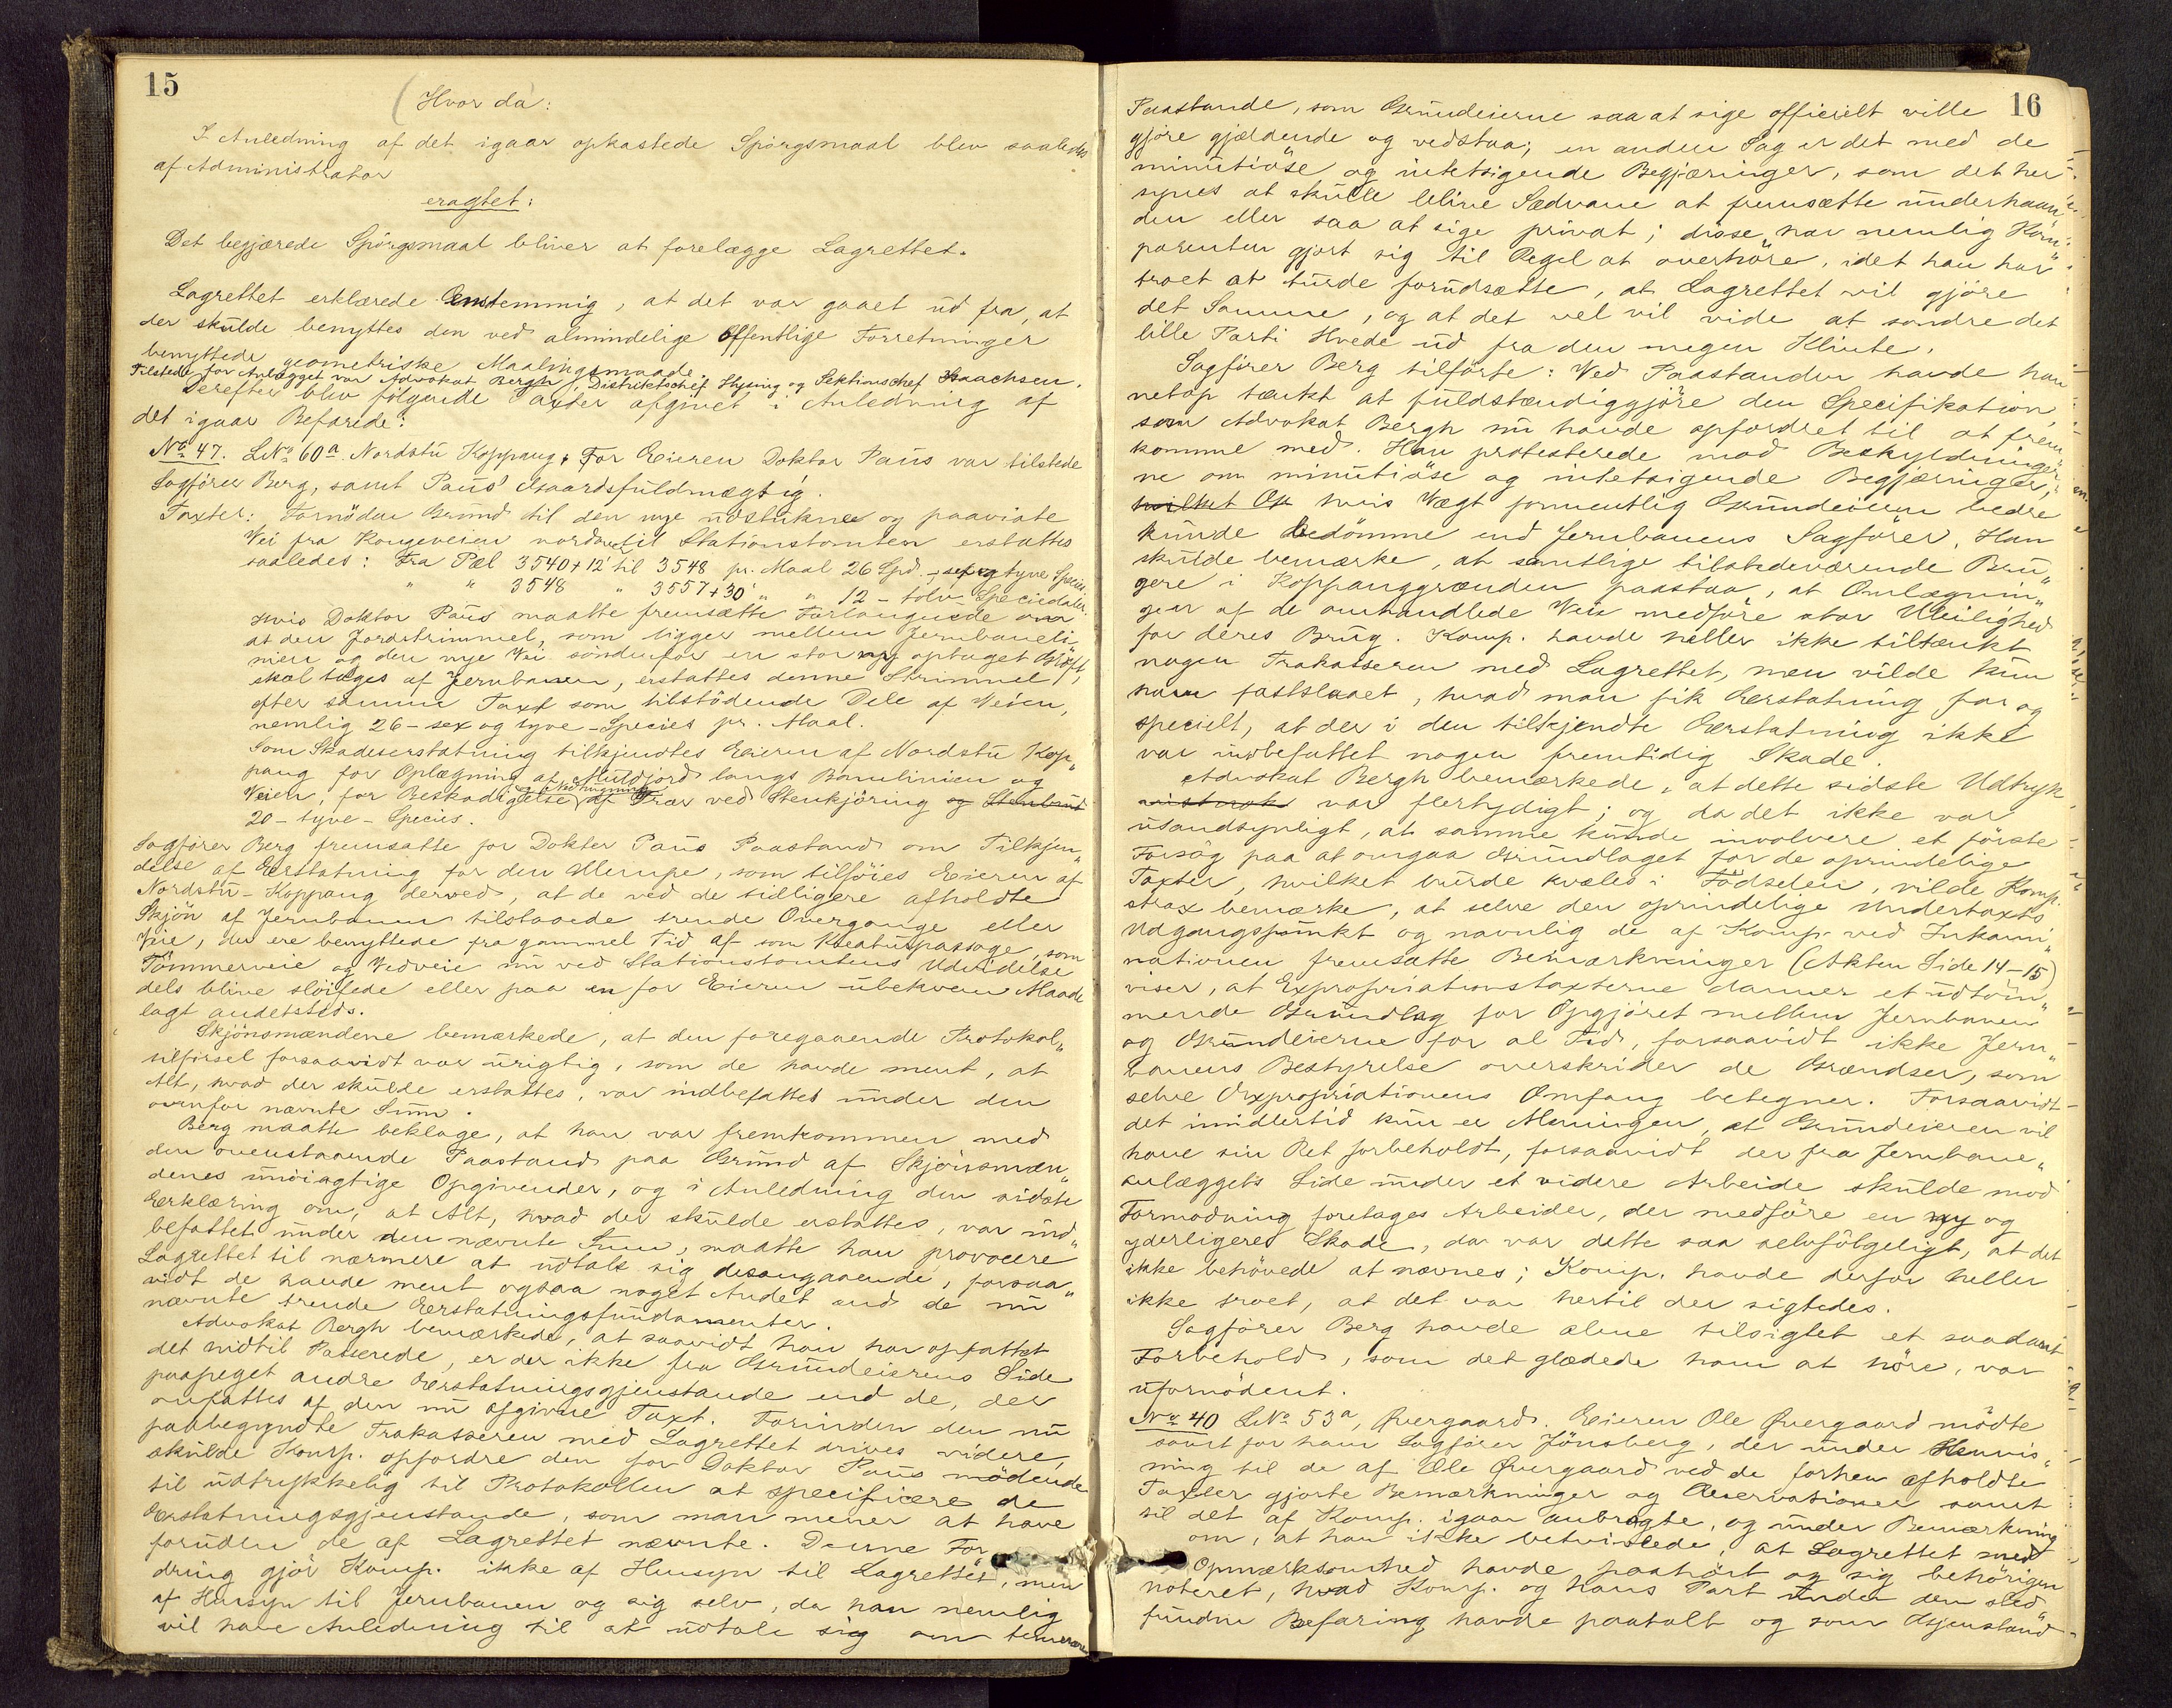 15
(Hvor da:
I Anledning af det igaar opkastede Spörgsmaal blev saaledes
af Administrator
eragtet:
Det begjærede Spörgsmaal bliver at forelægge Lagrettet.
Lagrettet erklærede Enstemmig, at det var gaaet ud fra, at
der skulde benyttes den ved almindelige Offentlige Forretninger
benyttede geometriske Maalingsmaade.
Tilstede for Anlægget var Advokat Bergh, Distriktschef Hysing og Sektionschef Isaachsen.
Derefter blev fölgende Taxter afgivet i Anledning af
det igaar Befarede:
No 47. LNo 60a Nordstu Koppang; For Eieren Doktor Paus var tilstede
Sagförer Berg, samt Paus' Gaardsfuldmægtig.
Taxter: Fornöden Grund til den nye udstukne og paaviste
Vei fra Kongeveien nordover til Stationstomten erstattes
saaledes: Fra Pæl 3540+12' til 3548 pr. Maal 26 Spd. - sex og tyve Species
" " 3548 " 3557+30' " " 12 - tolv Speciedaler.
Hvis Doktor Paus maatte fremsætte Forlangende om
at den Jordstrimmel, som ligger mellem Jernbaneli-
nien og den nye Vei söndenfor en stor ny optaget Gröft,
skal tages af Jernbanen, erstattes denne Strimmel
efter samme Taxt som tilstödende Dele af Veien,
nemlig 26 - sex og tyve - Species pr. Maal.
Som Skadeserstatning tilkjendtes Eieren af Nordstu Kop„
pang for Oplægning af Muldjord langs Banelinien og
Veien, for Beskadigelse og Nedhugning af Træer ved Stenkjöring og Stenbrud
20 - tyve - Species.
Sagförer Berg fremsatte for Dokter Paus Paastand om Tilkjen„
delse af Erstatning for den Ulempe, som tilföies Eieren af
Nordstu-Koppang derved, at de ved de tidligere afholdte
Skjön af Jernbanen tilstaaede trende Overgange eller
Veie, der ere benyttede fra gammel Tid af som Kreaturpassage, som
Tömmerveie og Vedveie nu ved Stationstomtens Udvidelse
dels blive slöifede eller paa en for Eieren ubekvem Maade
lagt andetsteds.
Skjönsmændene bemærkede, at den foregaaende Protokol„
tilförsel forsaavidt var urigtig, som de havde ment, at
Alt, hvad der skulde erstattes, var indbefattet under den
ovenfor nævnte Sum.
Berg maatte beklage, at han var fremkommen med
den ovenstaaende Paastand paa Grund af Skjönsmæn„
denes unöiagtige Opgivender, og i Anledning den sidste
Erklæring om, at Alt, hvad der skulde erstattes, var ind„
befattet under den nævnte Sum, maatte han provocere
Lagrettet til nærmere at udtale sig desangaaende, forsaa„
vidt de havde ment ogsaa noget Andet end de nu
nævnte trende Erstatningsfundamenter.
Advokat Bergh bemærkede, at saavidt han har opfattet
det hidtil Passerede, er der ikke fra Grundeierens Side
paapeget andre Erstatningsgjenstande end de, der
omfattes af den nu afgivne Taxt. Forinden den nu
paabegyndte Trakasseren med Lagrettet drives videre,
skulde Komp. opfordre den for Doktor Paus mödende
til udtrykkelig til Protokollen at specificere de
Erstatningsgjenstande, som man mener at have
foruden de af Lagrettet nævnte. Denne For„
dring gjör Komp. ikke af Hensyn til Lagrettet, men
af Hensyn til Jernbanen og sig selv, da han nemlig
vil have Anledning til at udtale sig om
16
Paastande, som Grundeierne saa at sige officielt ville
gjöre gjældende og vedstaa; en anden Sag er det med de
minutiöse og intetsigende Begjæringer, som det her
synes at skulle blive Sædvane at fremsætte underhaan„
den eller saa at sige privat; disse har nemlig Kom„
parenten gjort sig til Regel at overhöre, idet han har
troet at turde forudsætte, at Lagrettet vil gjöre
det Samme, og at det vel vil vide at sondre det
lille Parti Hvede ud fra den megen Klinte.
Sagförer Berg tilförte: Ved Paastanden havde han
netop tænkt at fuldstændiggjöre den Specifikation,
som Advokat Bergh nu havde opfordret til at frem„
komme med. Han protesterede mod Beskyldninger„
ne om minutiöse og intetsigende Begjæringer,
hvis Vægt formentlig Grundeieren bedre
kunde bedömme end Jernbanens Sagförer. Han
skulde bemærke, at samtlige tilstedeværende Bru„
gere i Koppanggrænden paastaa, at Omlægnin„
gen af de omhandlede Veie medföre stor Uleilighed
for deres Brug. Komp. havde heller ikke tiltænkt
nogen Trakasseren med Lagrettet, men vilde kun
have fastslaaet, hvad man fik Erstatning for og
specielt, at der i den tilkjendte Erstatning ikke
var indbefattet nogen fremtidig Skade.
Advokat Bergh bemærkede, at dette sidste Udtryk
var flertydigt; og da det ikke var
usandsynligt, at samme kunde involvere et förste
Forsög paa at omgaa Grundlaget for de oprindelige
Taxter, hvilket burde kvæles i Födselen, vilde Komp.
strax bemærke, at selve den oprindelige Undertaxts
Udgangspunkt og navnlig de af Komp. ved Inkami„
nationen fremsatte Bemærkninger (Akten Side 14-15)
viser, at Expropriationstaxterne danner et udtöm„
mende Grundlag for Opgjöret mellem Jernbanen
og Grundeierne for al Tid, forsaavidt ikke Jern„
banens Bestyrelse overskrider de Grændser, som
selve Expropriationens Omfang betegner. Forsaavidt
det imidlertid kun er Meningen, at Grundeieren vil
have sin Ret forbeholdt, forsaavidt der fra Jernbane„
anlæggets Side under et videre Arbeide skulde mod
Formodning foretages Arbeider, der medföre en ny og
yderligere Skade, da var dette saa selvfölgeligt, at det
ikke behövede at nævnes; Komp. havde derfor heller
ikke troet, at det var hertil der sigtedes.
Sagförer Berg havde alene tilsigtet et saadant
Forbehold, som det glædede ham at höre, var
ufornödent.
No 40 LNo 53a, Övergaard. Eieren Ole Övergaard mödte
samt for ham Sagförer Jönsberg, der under Henvis„
ning til de af Ole Övergaard ved de forhen afholdte
Taxter gjorte Bemærkninger og Reservationer samt
til det af Komp. igaar anbragte, og under Bemærkning
om, at han ikke betvivlede, at Lagrettet med
Opmærksomhed havde paahört og sig behörigen
noteret, hvad Komp. og hans Part under den sted„
fundne Befaring havde paatalt og som Gjenstand